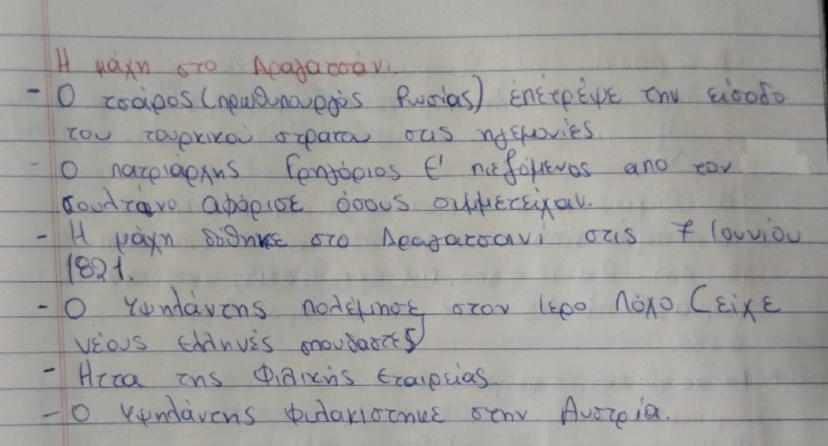 Η μάχη στο Δραγατσάνι.
- Ο τσάρος (πρωθυπουργός Ρωσίας) επέτρεψε την είσοδο
του τουρκικού στρατου στις ηγεμονίες.
- Ο πατριάρχης Γρηγόριος Ε' πιεζόμενος απο τον
σουλτάνο αφόρισε όσους συμμετείχαν.
- Η μάχη δόθηκε στο Δραγατσανι στις 7 Ιουνίου
1821.
- Ο Υψηλάντης πολέμησε στον Ιερο Λόχο (είχε
νέους ελληνές σπουδαστες)
- Ηττα της Φιλικής Εταιρείας.
- Ο Υψηλάντης φιλακιστηκε στην Αυστρία.